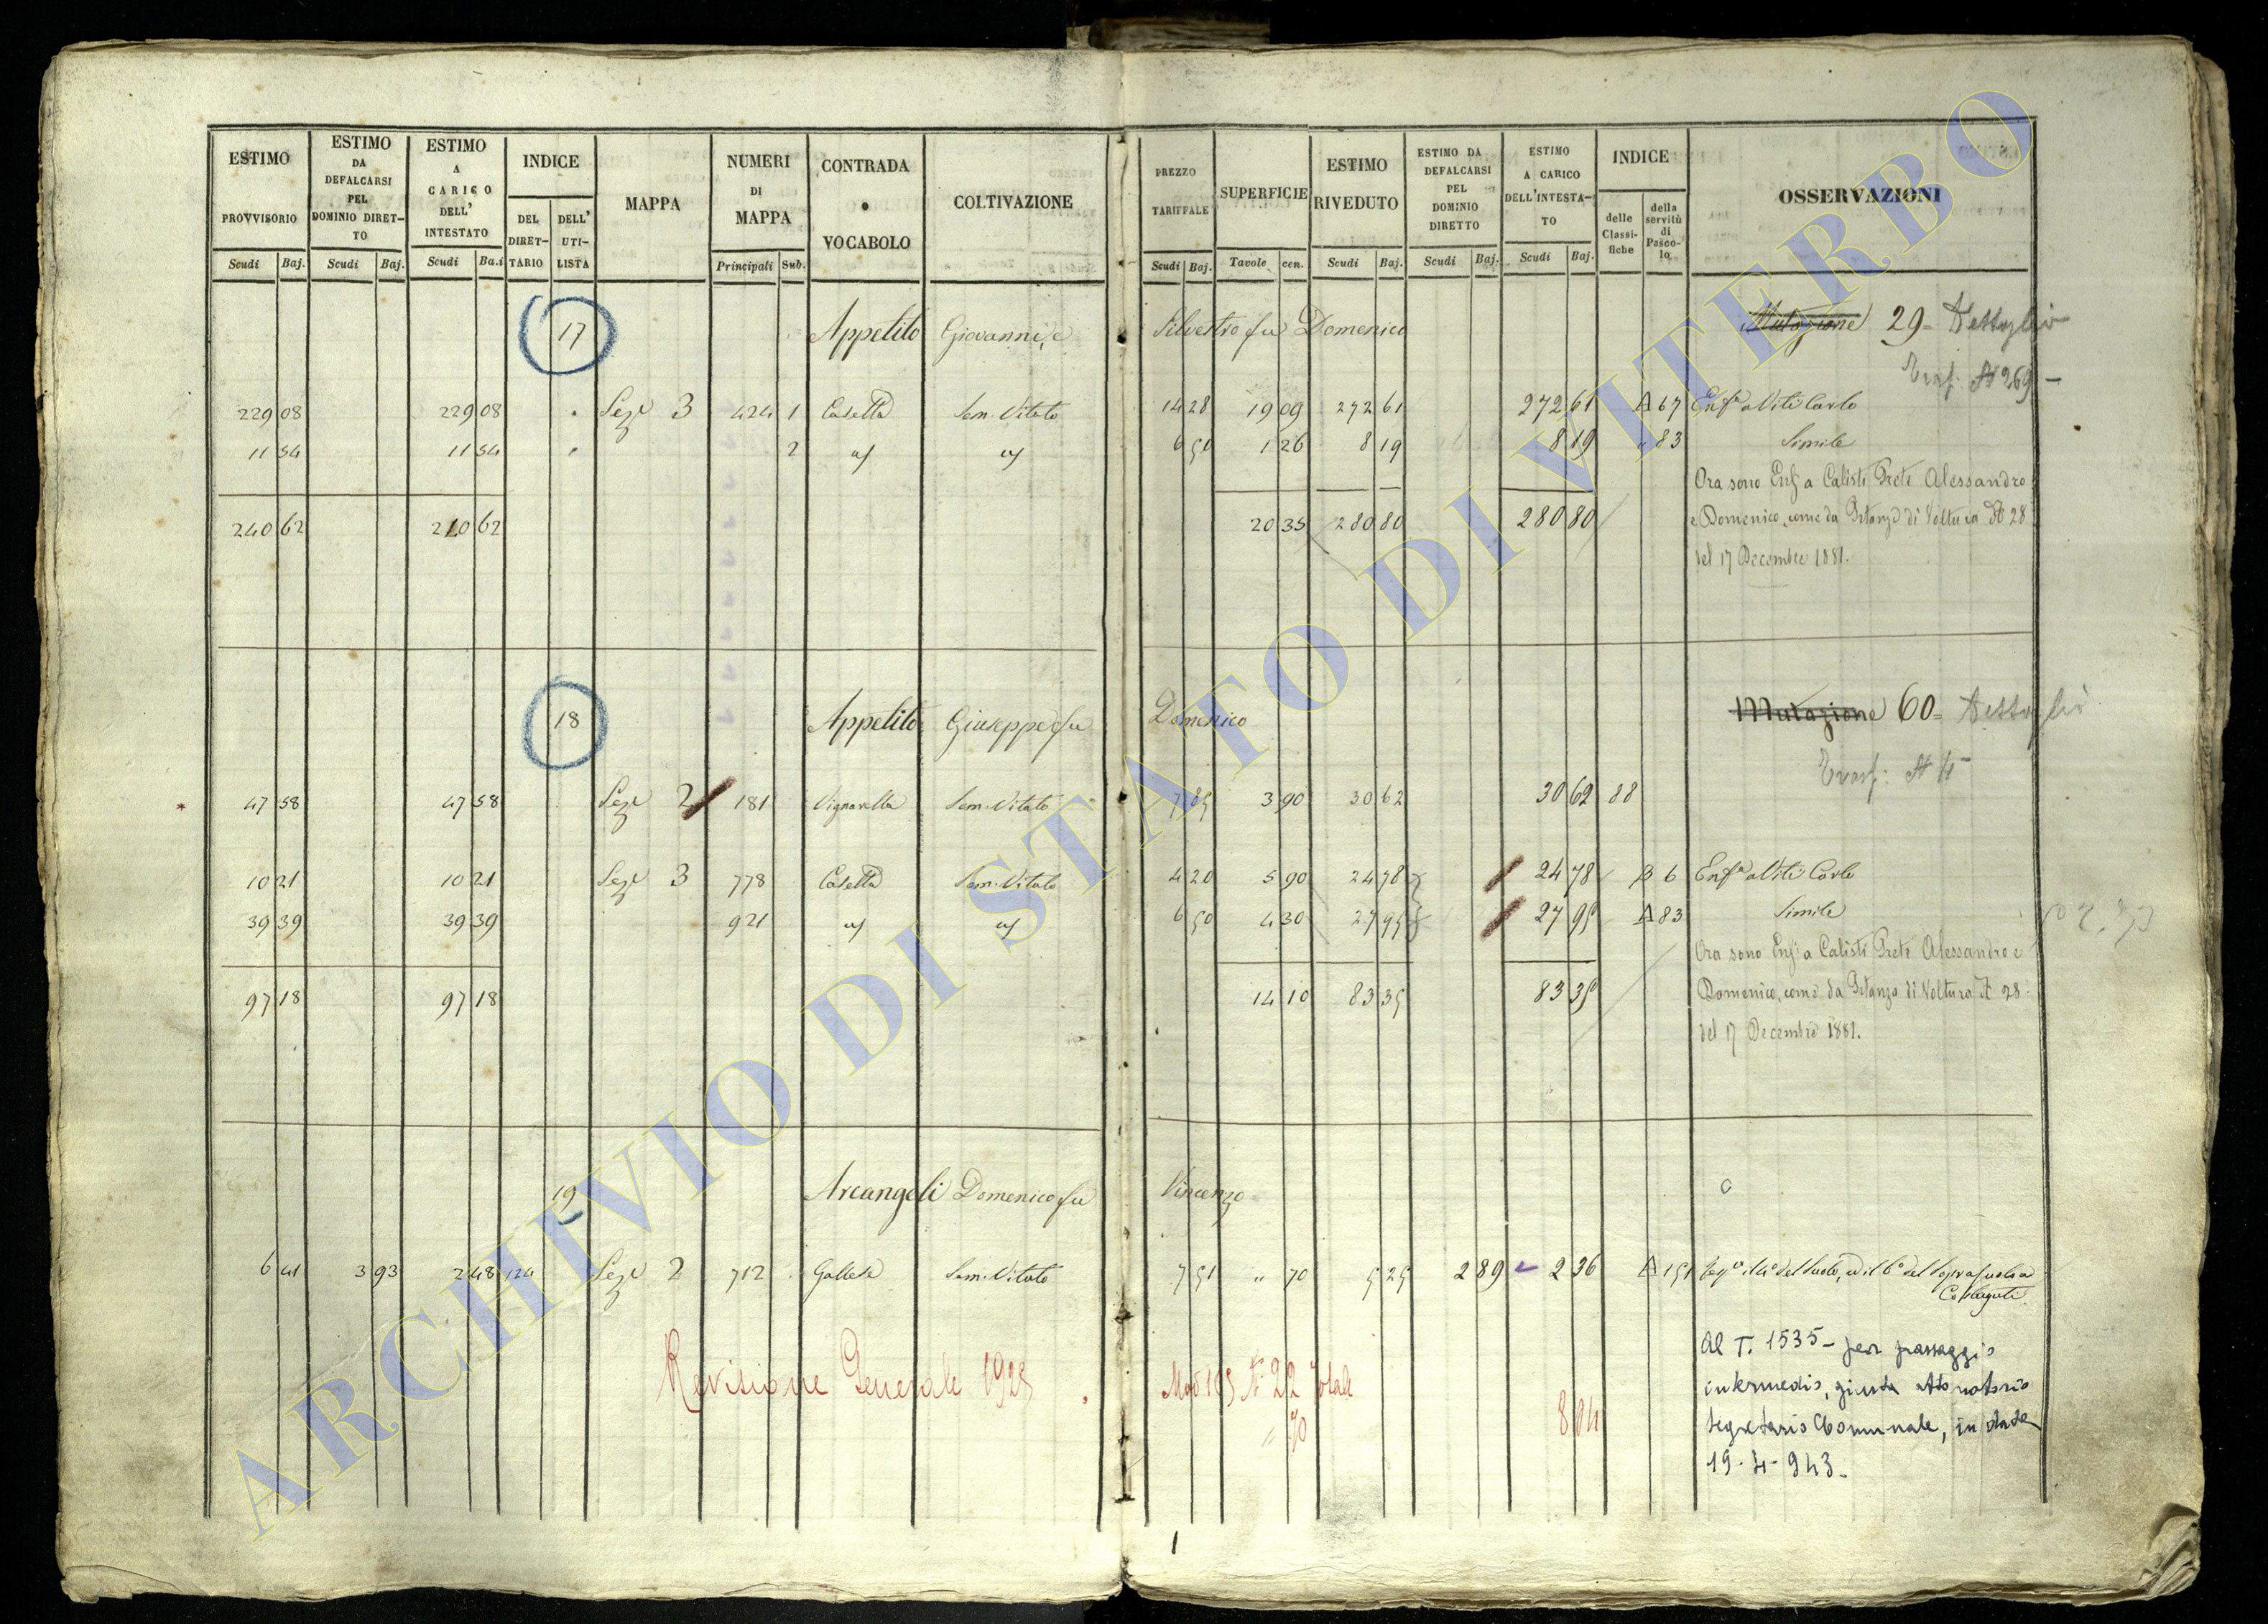 ESTIMO PROVVISORIO Scudi Baj.
ESTIMO DA DEFALCARSI PEL DOMINIO DIRET-TO Scudi Baj.
ESTIMO A CARICO DELL' INTESTATO Scudi Ba.i
INDICE DEL DIRET-TARIO DELL' UTI-LISTA
MAPPA
NUMERI DI MAPPA Principali Sub.
CONTRADA o VOCABOLO
COLTIVAZIONE
PREZZO TARIFFALE Scudi Baj.
SUPERFICIE Tavole cen.
ESTIMO RIVEDUTO Scudi Baj.
ESTIMO DA DEFALCARSI PEL DOMINIO DIRETTO Scudi Baj.
ESTIMO A CARICO DELL'INTESTA-TO Scudi Baj.
INDICE delle Classi-fiche della servitù di Pasco-lo
OSSERVAZIONI
17 Appetito Giovanni, e Silvestro fu Domenico Mutazione 29= Dettaglio
Trasf. N 269 -
229 08 229 08 Sez.e 3 424 1 Casetta Sem. Vitato 14 28 19 09 272 61 272 61 A 67 Enf.a a Viti Carlo
11 54 11 54 2 6 50 1 26 8 19 8 19 " 83 Simile
Ora sono Enf. a Calisti Prete Alessandro
240 62 240 62 20 35 280 80 280 80 e Domenico, come da Istanza di Voltura N 28
del 17 Decembre 1881.
18 Appetito Giuseppe fu Domenico Mutazione 60= Dettaglio
Trasf: N
47 58 47 58 Sez.e 2 181 Vignarella Sem. Vitato 7 85 3 90 30 62 30 62 88
10 21 10 21 Sez.e 3 778 Casetta Sem. Vitato 4 20 5 90 24 78 24 78 B 6 Enf.a a Viti Carlo
39 39 39 39 921 6 50 4 30 27 95 27 95 A 83 Simile
Ora sono Enf. a Calisti Prete Alessandro e
97 18 97 18 14 10 83 35 83 35 Domenico, come da Istanza di Voltura N 28
del 17 Decembre 1881.
19 Arcangeli Domenico fu Vincenzo
6 41 3 93 2 48 124 Sez.e 2 712 Gallese Sem. Vitato 7 51 " 70 5 25 2 89 2 36 A 151
Revisione Generale 1925 Mod 105 N 22 Totale
" 70 8 04
Al T. 1535 - per passaggio
intermedio, giusta atto notorio
Segretario Comunale, in data
19-4-943.
1
ARCHIVIO DI STATO DI VITERBO